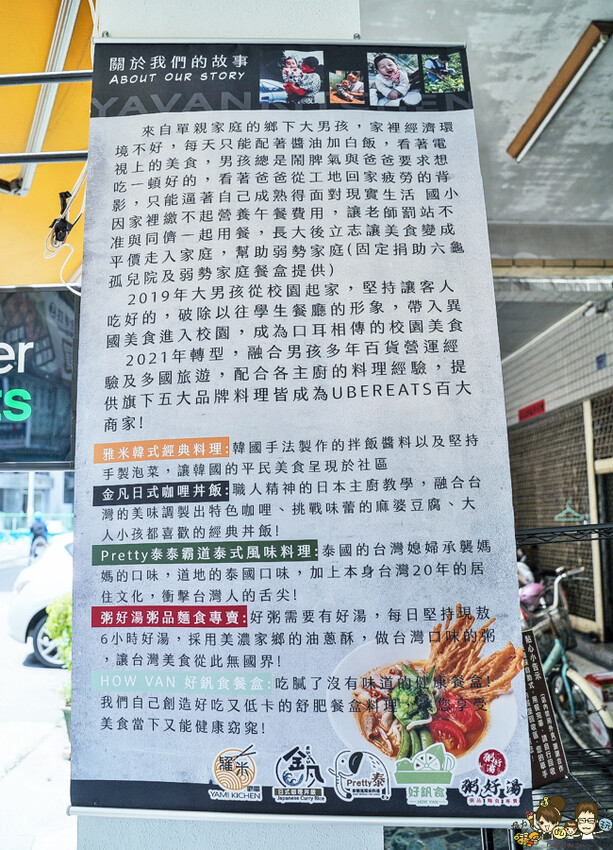 關於我們的故事
ABOUT OUR STORY
來自單親家庭的鄉下大男孩，家裡經濟環
境不好，每天只能配著醬油加白飯，看著電
視上的美食，男孩總是鬧脾氣與爸爸要求想
吃一頓好的，看著爸爸從工地回家疲勞的背
影，只能逼著自己成熟得面對現實生活 國小
因家裡繳不起營養午餐費用，讓老師罰站不
准與同儕一起用餐，長大後立志讓美食變成
平價走入家庭，幫助弱勢家庭(固定捐助六龜
孤兒院及弱勢家庭餐盒提供)
2019年大男孩從校園起家，堅持讓客人
吃好的，破除以往學生餐廳的形象，帶入異
國美食進入校園，成為口耳相傳的校園美食
2021年轉型，融合男孩多年百貨營運經
驗及多國旅遊，配合各主廚的料理經驗，提
供旗下五大品牌料理皆成為UBEREATS百大
商家!
雅米韓式經典料理:韓國手法製作的拌飯醬料以及堅持
手製泡菜，讓韓國的平民美食呈現於社區
金凡日式咖哩丼飯:職人精神的日本主廚教學，融合台
灣的美味調製出特色咖哩、挑戰味蕾的麻婆豆腐、大
人小孩都喜歡的經典丼飯!
Pretty泰泰霸道泰式風味料理:泰國的台灣媳婦承襲媽
媽的口味，道地的泰國口味，加上本身台灣20年的居
住文化，衝擊台灣人的舌尖!
粥好湯粥品麵食專賣:好粥需要有好湯，每日堅持現熬
6小時好湯，採用美濃家鄉的油蔥酥，做台灣口味的粥
，讓台灣美食從此無國界!
HOW VAN 好飯食餐盒:吃膩了沒有味道的健康餐盒!
我們自己創造好吃又低卡的舒肥餐盒料理，讓您享受
美食當下又能健康窈窕!
YAMI KICHEN
金凡
日式咖哩丼飯
Japanese Curry Rice
Pretty泰
好飯食
HOW VAN
粥好湯
粥好湯
er
ts